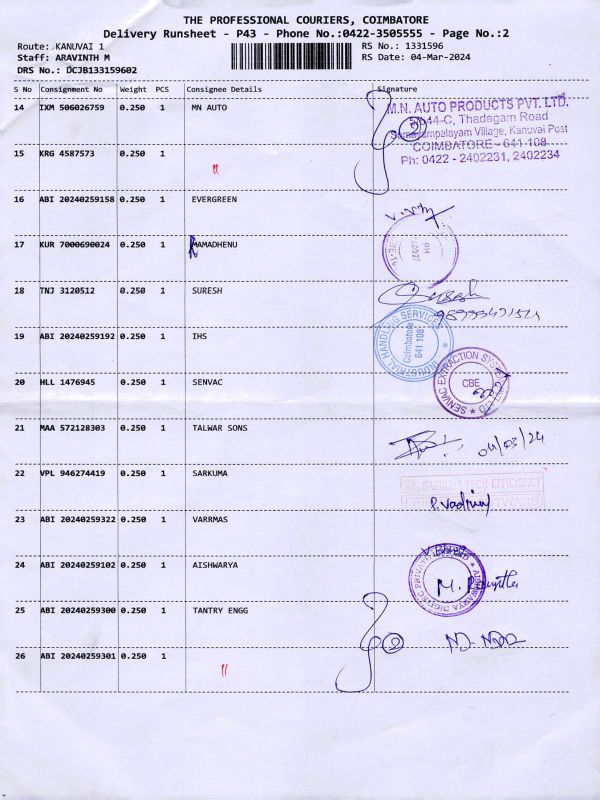 THE PROFESSIONAL COURIERS, COIMBATORE
Delivery Runsheet - P43 - Phone No.:0422-3505555 - Page No.:2
Route: KANUVAI 1
RS No.: 1331596
Staff: ARAVINTH M
RS Date: 04-Mar-2024
DRS No.: DCJB133159602
S No Consignment No Weight PCS Consignee Details Signature
14 IXM 506026759 0.250 1 MN AUTO
M.N. AUTO PRODUCTS PVT. LTD.
44-C, Thadagam Road
Village, Kanuvai Post
COIMBATORE - 641 108
Ph: 0422 - 2402231, 2402234
2
15 KRG 4587573 0.250 1
"
16 ABI 20240259158 0.250 1 EVERGREEN
17 KUR 7000690024 0.250 1 KAMADHENU
18 TNJ 3120512 0.250 1 SURESH
Suresh
19 ABI 20240259192 0.250 1 IHS
INDUSTRIAL HANDLING SERVICES
Coimbatore
641 108
20 HLL 1476945 0.250 1 SENVAC
SENVAC EXTRACTION
CBE
21 MAA 572128303 0.250 1 TALWAR SONS
04/03/24
22 VPL 946274419 0.250 1 SARKUMA
SARKUMA TECH EFFICIENCY
INWARD
P. Vadivel
23 ABI 20240259322 0.250 1 VARRMAS
24 ABI 20240259102 0.250 1 AISHWARYA
AISHWARYA
M.
25 ABI 20240259300 0.250 1 TANTRY ENGG
2
26 ABI 20240259301 0.250 1
"